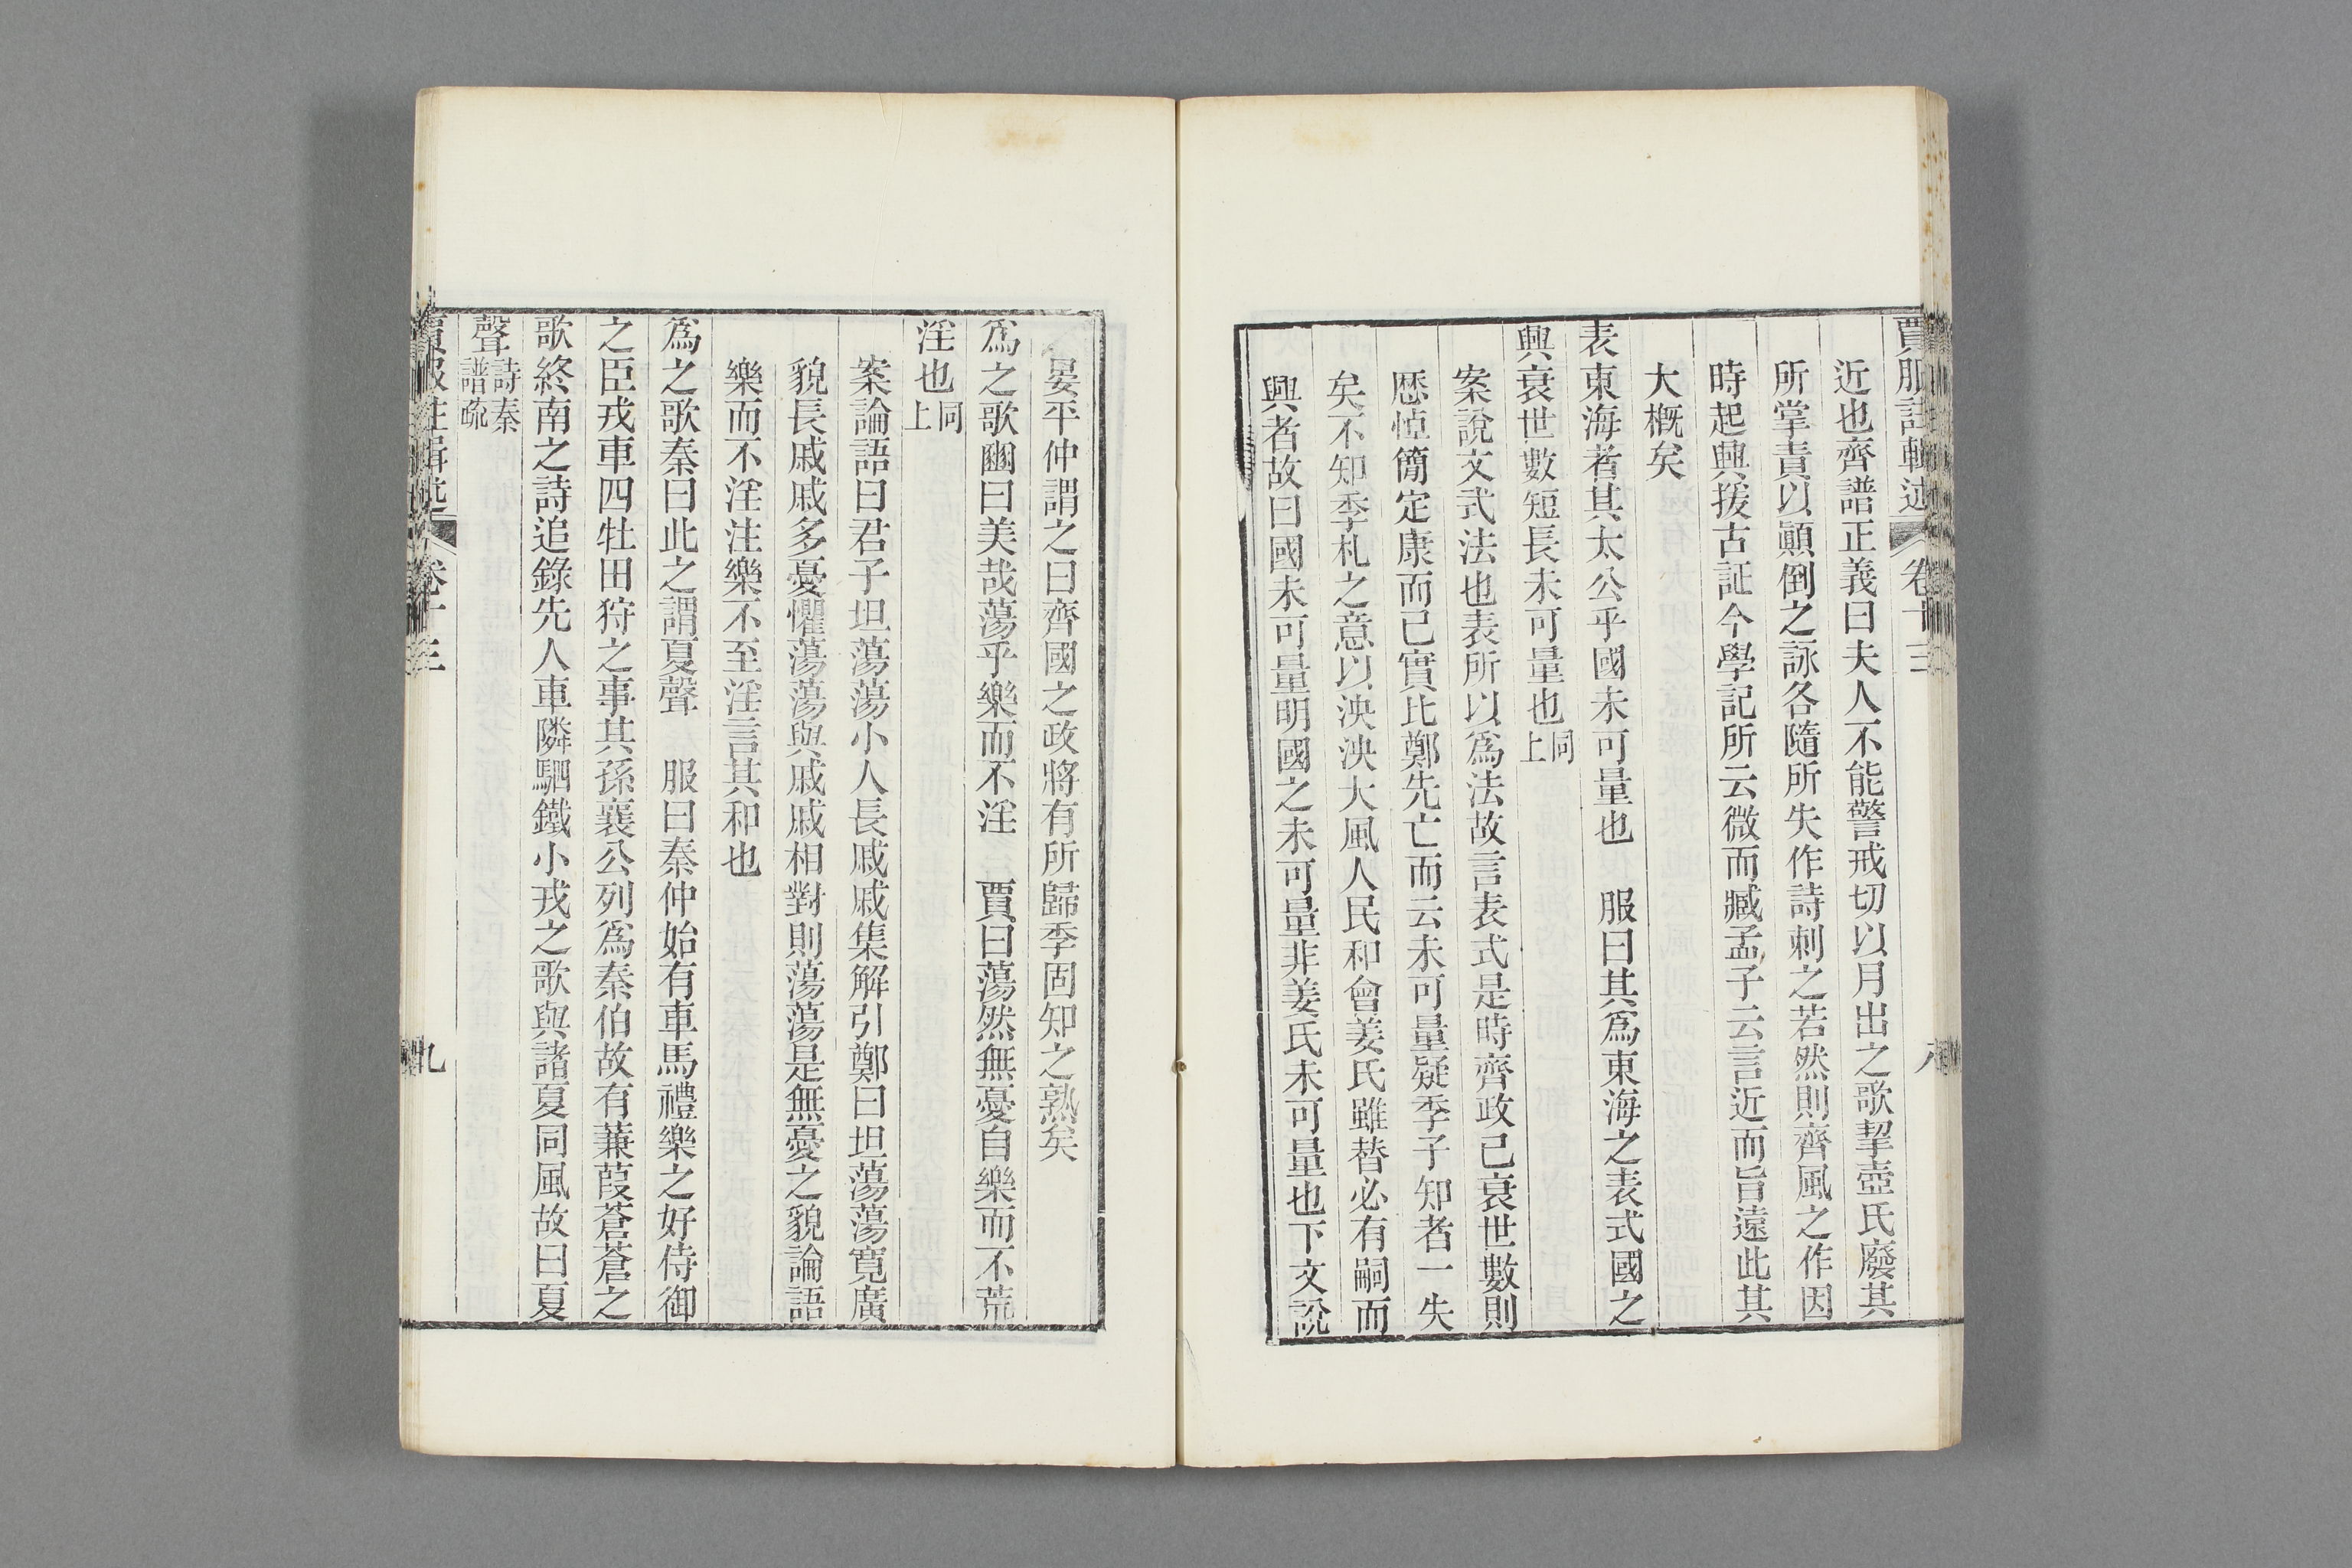 賈服註輯述 卷十三 八
近也齊譜正義曰夫人不能警戒切以月出之歌挈壺氏廢其
所掌責以顚倒之詠各隨所失作詩刺之若然則齊風之作因
時起興援古証今學記所云微而臧孟子云言近而旨遠此其
大槪矣
表東海者其太公乎國未可量也　服曰其爲東海之表式國之
興衰世數短長未可量也同上
案說文式法也表所以爲法故言表式是時齊政已衰世數則
厯悼簡定康而已實比鄭先亡而云未可量疑季子知者一失
矣不知季札之意以泱泱大風人民和會姜氏雖替必有嗣而
興者故曰國未可量明國之未可量非姜氏未可量也下文說
晏平仲謂之曰齊國之政將有所歸季固知之熟矣
爲之歌豳曰美哉蕩乎樂而不淫　賈曰蕩然無憂自樂而不荒
淫也同上
案論語曰君子坦蕩蕩小人長戚戚集解引鄭曰坦蕩蕩寬廣
貌長戚戚多憂懼蕩蕩與戚戚相對則蕩蕩是無憂之貌論語
樂而不淫注樂不至淫言其和也
爲之歌秦曰此之謂夏聲　服曰秦仲始有車馬禮樂之好侍御
之臣戎車四牡田狩之事其孫襄公列爲秦伯故有蒹葭蒼蒼之
歌終南之詩追錄先人車隣駟鐵小戎之歌與諸夏同風故曰夏
聲詩秦譜疏
賈服註輯述 卷十三 九